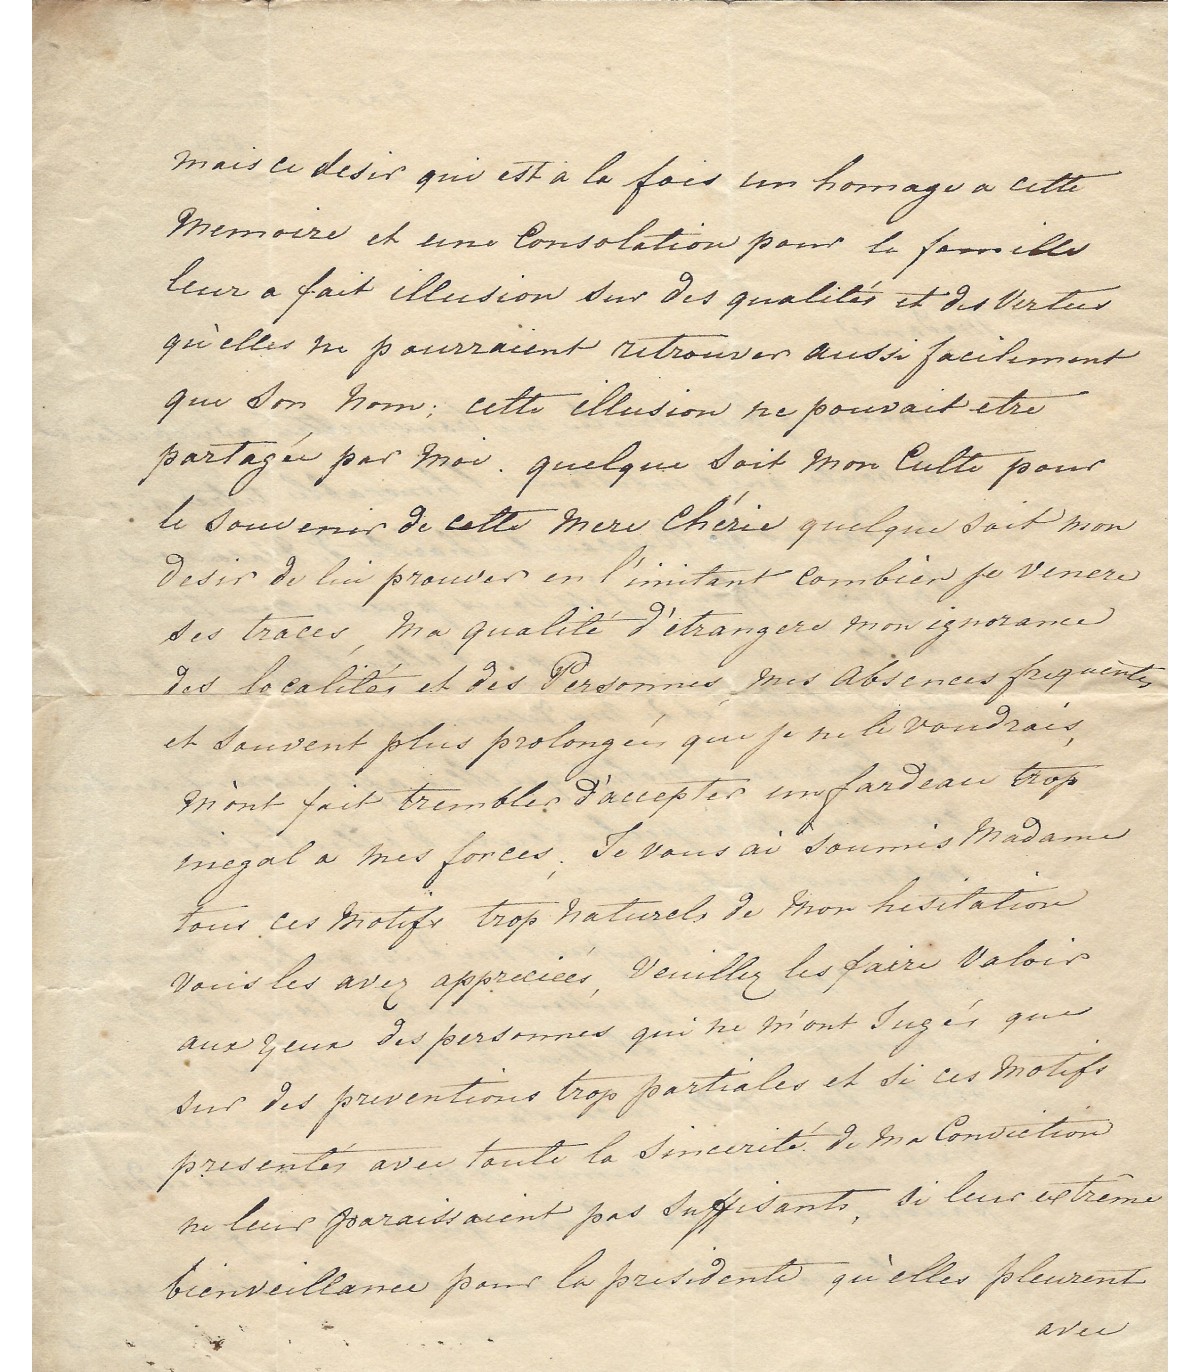 mais ce desir qui est a la fois un homage a cette
Memoire et une Consolation pour la famille
leur a fait illusion sur des qualités et des Vertus
qu'elles ne pourraient retrouver aussi facilement
que son Nom; cette illusion ne pouvait etre
partagée par Moi. quelque soit Mon Culte pour
le souvenir de cette Mere Chérie quelque soit mon
desir de lui prouver en l'imitant combien je venere
ses traces, Ma qualité d'étrangere mon ignorance
des localités et des Personnes, Mes Absences frequentes
et souvent plus prolongées que je ne le voudrais,
M'ont fait trembler d'accepter un fardeau trop
inegal a Mes forces, Je vous ai soumis Madame
tous ces Motifs trop Naturels de Mon hesitation
vous les avez appreciés, Veuillez les faire Valoir
aux yeux des personnes qui ne M'ont Jugés que
sur des preventions trop partiales et si ces Motifs
presentés avec toute la sincerité de Ma Conviction
ne leur paraissaient pas suffisants, si leur extrême
bienveillance pour la presidente qu'elles pleurent
avec